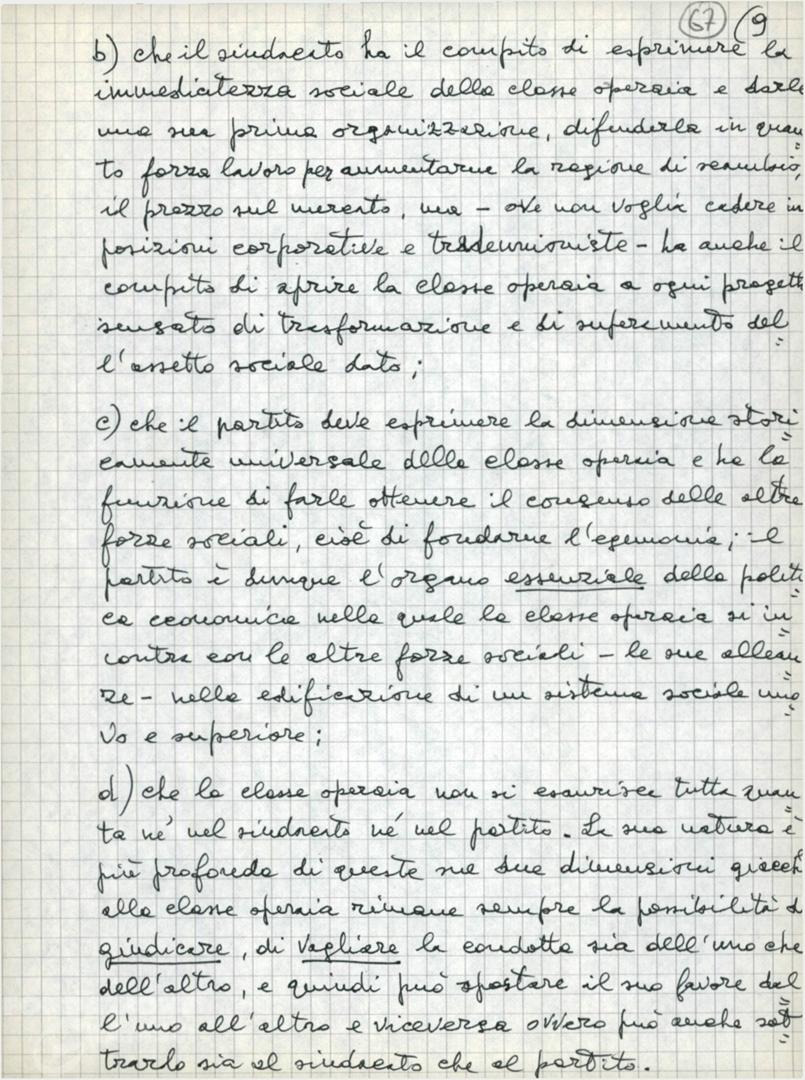 67 (9
b) che il sindacato ha il compito di esprimere la
immediatezza sociale della classe operaia e darle
una sua prima organizzazione, difenderla in quan=
to forza lavoro per aumentarne la ragione di scambio,
il prezzo sul mercato, ma – ove non voglia cadere in
posizioni corporative e tradeunioniste – ha anche il
compito di aprire la classe operaia a ogni progett
sensato di trasformazione e di superamento del=
l'assetto sociale dato;
c) che il partito deve esprimere la dimensione stori=
camente universale della classe operaia e ha la
funzione di farle ottenere il consenso delle altre
forze sociali, cioè di fondarne l'egemonia; il
partito è dunque l'organo essenziale della politi=
ca economica nella quale la classe operaia si in=
contra con le altre forze sociali – le sue allean=
ze – nella edificazione di un sistema sociale nuo=
vo e superiore;
d) che la classe operaia non si esaurisce tutta quan=
ta né nel sindacato né nel partito. La sua natura è
più profonda di queste sue due dimensioni giacch
alla classe operaia rimane sempre la possibilità d
giudicare, di vagliare la condotta sia dell'uno che
dell'altro, e quindi può spostare il suo favore dal=
l'uno all'altro e viceversa ovvero può anche sot=
trarlo sia al sindacato che al partito.